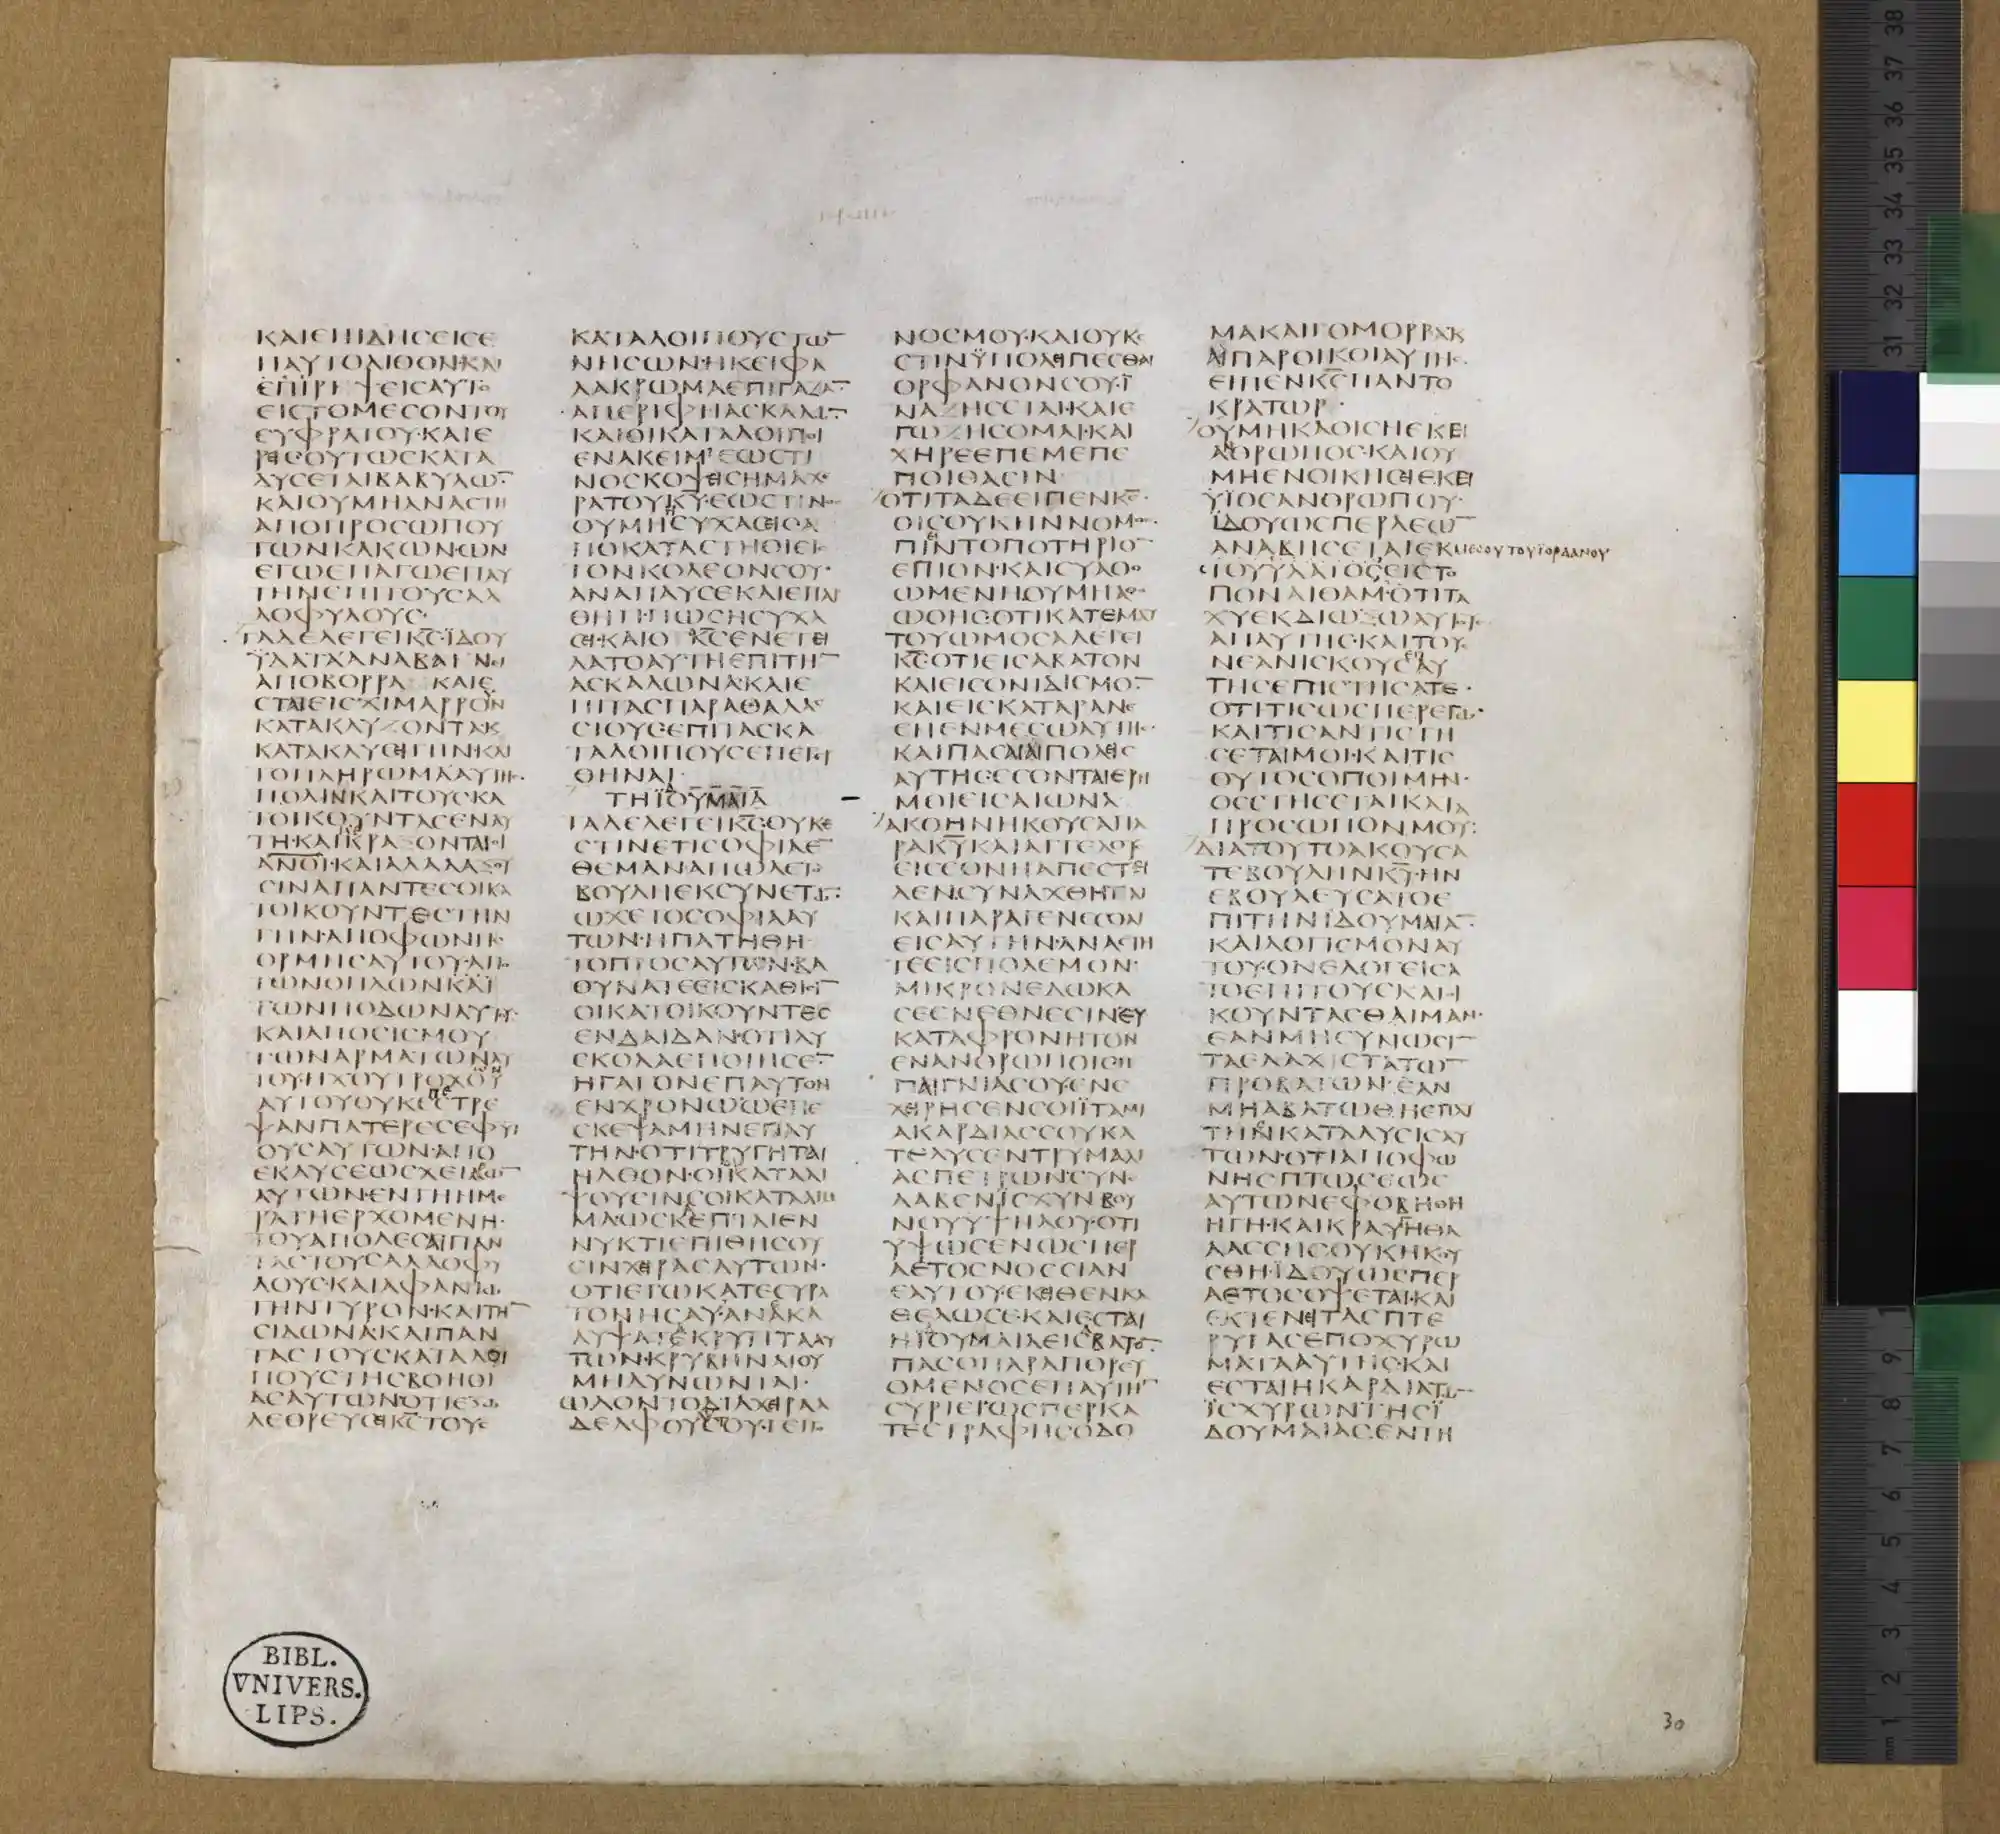 ΚΑΙΕΠΙΔΗΣΕΙΣΕ
ΠΑΥΤΟΛΙΘΟΝ·ΚΑΙ
ΕΠΙΡΙΨΕΙΣΑΥΤΟ
ΕΙΣΤΟΜΕΣΟΝΤΟΥ
ΕΥΦΡΑΤΟΥ·ΚΑΙΕ
ΡΕΙΣ·ΟΥΤΩΣΚΑΤΑ
ΔΥΣΕΤΑΙΒΑΒΥΛΩ̅·
ΚΑΙΟΥΜΗΑΝΑΣΤΗ
ΑΠΟΠΡΟΣΩΠΟΥ
ΤΩΝΚΑΚΩΝ·ΩΝ
ΕΓΩΕΠΑΓΩΕΠΑΥ
ΤΗΝΕΠΙΤΟΥΣΑΛ
ΛΟΦΥΛΟΥΣ·
ΤΑΔΕΛΕΓΕΙΚ̅Σ̅·ΪΔΟΥ
ΫΔΑΤΑΑΝΑΒΑΙΝΕΙ
ΑΠΟΒΟΡΡΑ ΚΑΙΕ
ΣΤΑΙΕΙΣΧΙΜΑΡΡΟΝ
ΚΑΤΑΚΛΥΖΟΝΤΑΚ
ΚΑΤΑΚΛΥΣΕΙΓΗΝ·ΚΑΙ
ΤΟΠΛΗΡΩΜΑΑΥΤΗΣ·
ΠΟΛΙΝΚΑΙΤΟΥΣΚΑ
ΤΟΙΚΟΥΝΤΑΣΕΝΑΥ
ΤΗ·ΚΑΙΚΕΚΡΑΞΟΝΤΑΙΟΙ
Α̅Ν̅Ο̅Ι̅·ΚΑΙΑΛΑΛΑΞΟΥ
ΣΙΝΑΠΑΝΤΕΣΟΙΚΑ
ΤΟΙΚΟΥΝΤΕΣΤΗΝ
ΓΗΝ·ΑΠΟΦΩΝΗΣ·
ΟΡΜΗΣΑΥΤΟΥ·ΑΠΟ
ΤΩΝΟΠΛΩΝΚΑΙ
ΤΩΝΠΟΔΩΝΑΥΤΟΥ·
ΚΑΙΑΠΟΣΙΣΜΟΥ
ΤΩΝΑΡΜΑΤΩΝΑΥ
ΤΟΥ·ΗΧΟΥΤΡΟΧΟΥ
ΑΥΤΟΥΟΥΚΕΠΕΣΤΡΕ
ΨΑΝΠΑΤΕΡΕΣΕΦΥΙ
ΟΥΣΑΥΤΩΝ·ΑΠΟ
ΕΚΛΥΣΕΩΣΧΕΙΡΩ̅
ΑΥΤΩΝ·ΕΝΤΗΗΜΕ
ΡΑΤΗΕΡΧΟΜΕΝΗ·
ΤΟΥΑΠΟΛΕΣΑΙΠΑΝ
ΤΑΣΤΟΥΣΑΛΛΟΦΥ
ΛΟΥΣ·ΚΑΙΑΦΑΝΙΩ
ΤΗΝΤΥΡΟΝ·ΚΑΙΤΗ̅
ΣΙΔΩΝΑ·ΚΑΙΠΑΝ
ΤΑΣΤΟΥΣΚΑΤΑΛΟΙ
ΠΟΥΣΤΗΣΒΟΗΘΙ
ΑΣΑΥΤΩΝ·ΟΤΙΕΞΟ
ΛΕΘΡΕΥΣΕΙΚ̅Σ̅ΤΟΥΣ
ΚΑΤΑΛΟΙΠΟΥΣΤΩ̅
ΝΗΣΩΝ·ΗΚΕΙΦΑ
ΛΑΚΡΩΜΑΕΠΙΓΑΖΑ̅·
ΑΠΕΡΙΦΗΑΣΚΑΛΩ̅
ΚΑΙΟΙΚΑΤΑΛΟΙΠΟΙ
ΕΝΑΚΕΙΜ·ΕΩΣΤΙ
ΝΟΣΚΟΨΕΙΣΗΜΑΧΑΙ
ΡΑΤΟΥΚ̅Υ̅·ΕΩΣΤΙΝΟΣ
ΟΥΜΗΣΥΧΑΣΕΙΣ
ΑΠΟΚΑΤΑΣΤΗΘΙΕΙΣ
ΤΟΝΚΟΛΕΟΝΣΟΥ·
ΑΝΑΠΑΥΣΕΚΑΙΕΠΑΡ
ΘΗΤΙ·ΠΩΣΗΣΥΧΑ
ΣΕΙ·ΚΑΙΟ Κ̅Σ̅ΕΝΕΤΕΙ
ΛΑΤΟΑΥΤΗΕΠΙΤΗ̅
ΑΣΚΑΛΩΝΑ·ΚΑΙΕ
ΠΙΤΑΣΠΑΡΑΘΑΛΑΣ
ΣΙΟΥΣ·ΕΠΙΤΑΣΚΑ
ΤΑΛΟΙΠΟΥΣΕΠΕΓΕΡ
ΘΗΝΑΙ·
ΤΗΪΔΟΥΜΑΙΑ
ΤΑΔΕΛΕΓΕΙΚ̅Σ̅·ΟΥΚΕ
ΣΤΙΝΕΤΙΣΟΦΙΑΕ̅
ΘΕΜΑΝΑΠΩΛΕΤΟ
ΒΟΥΛΗΕΚΣΥΝΕΤΩ̅:
ΩΧΕΤΟΣΟΦΙΑΑΥ
ΤΩΝ·ΗΠΑΤΗΘΗ
ΤΟΠΤΟΣΑΥΤΩΝ·ΒΑ
ΘΥΝΑΤΕΕΙΣΚΑΘΙ̅
ΟΙΚΑΤΟΙΚΟΥΝΤΕΣ
ΕΝΔΑΙΔΑΝ·ΟΤΙΔΥ
ΣΚΟΛΑΕΠΟΙΗΣΕ̅
ΗΓΑΓΟΝΕΠΑΥΤΟΝ
ΕΝΧΡΟΝΩΩΕΠΕ
ΣΚΕΨΑΜΗΝΕΠΑΥ
ΤΗΝ·ΟΤΙΤΡΥΓΗΤΑΙ
ΗΛΘΟΝ·ΟΙΚΑΤΑΛΙ
ΨΟΥΣΙΝΣΟΙΚΑΤΑΛΙΜ
ΜΑ·ΩΣΚΕΠΤΑΙΕΝ
ΝΥΚΤΙΕΠΙΘΗΣΟΥ
ΣΙΝΧΕΙΡΑΣΑΥΤΩΝ·
ΟΤΙΕΓΩΚΑΤΕΣΥΡΑ
ΤΟΝΗΣΑΥ·ΑΝΕΚΑ
ΛΥΨΑΤΕΚΡΥΠΤΑΑΥ
ΤΩΝ·ΚΡΥΒΗΝΑΙΟΥ
ΜΗΔΥΝΩΝΤΑΙ·
ΩΛΟΝΤΟΔΙΑΧΕΙΡΑΑ
ΔΕΛΦΟΥΣΟΥ·ΓΕΙΤΟ
ΝΟΣΜΟΥ·ΚΑΙΟΥΚΕ
ΣΤΙΝΫΠΟΛΕΙΠΕΣΘΑΙ
ΟΡΦΑΝΟΝΣΟΥ·Ϊ
ΝΑΖΗΣΕΤΑΙ·ΚΑΙΕ
ΓΩΖΗΣΟΜΑΙ·ΚΑΙ
ΧΗΡΕΕΠΕΜΕΠΕ
ΠΟΙΘΑΣΙΝ·
ΟΤΙΤΑΔΕΕΙΠΕΝΚ̅Σ̅·
ΟΙΣΟΥΚΗΝΝΟΜΟΣ
ΠΙΕΙΝΤΟΠΟΤΗΡΙΟ̅
ΕΠΙΟΝ·ΚΑΙΣΥΑΘΟ
ΩΜΕΝΗΟΥΜΗΑΘΟ
ΩΘΗΣ·ΟΤΙΚΑΤΕΜΑΥ
ΤΟΥΩΜΟΣΑΛΕΓΕΙ
Κ̅Σ̅·ΟΤΙΕΙΣΑΒΑΤΟΝ
ΚΑΙΕΙΣΟΝΙΔΙΣΜΟ̅
ΚΑΙΕΙΣΚΑΤΑΡΑΝΕ
ΣΗΕΝΜΕΣΩΑΥΤΗΣ·
ΚΑΙΠΑΣΑΙΑΙΠΟΛΕΙΣ
ΑΥΤΗΣΕΣΟΝΤΑΙΕΡΗ
ΜΟΙΕΙΣΑΙΩΝΑ
ΑΚΟΗΝΗΚΟΥΣΑΠΑ
ΡΑΚ̅Υ̅ΚΑΙΑΓΓΕΛΟΥΣ
ΕΙΣΕΘΝΗΑΠΕΣΤΕΙ
ΛΕΝ·ΣΥΝΑΧΘΗΤΑΙ
ΚΑΙΠΑΡΑΓΕΝΕΣΘΑΙ
ΕΙΣΑΥΤΗΝ·ΑΝΑΣΤΗ
ΤΕΕΙΣΠΟΛΕΜΟΝ·
ΜΙΚΡΟΝΕΔΩΚΑ
ΣΕΕΝΕΘΝΕΣΙΝΕΥ
ΚΑΤΑΦΡΟΝΗΤΟΝ
ΕΝΑΝΟΡΩΠΟΙΣΗ
ΠΑΙΓΝΙΑΣΟΥΕΝΕ
ΧΕΙΡΗΣΕΝΣΟΙΪΤΑΜΙ
ΑΚΑΡΔΙΑΣΣΟΥΚΑ
ΤΕΛΥΣΕΝΤΡΥΜΑΛΙ
ΑΣΠΕΤΡΩΝ·ΣΥΝΕ
ΛΑΒΕΝΙΣΧΥΝΒΟΥ
ΝΟΥΥΨΗΛΟΥ·ΟΤΙ
ΥΨΩΣΕΝΩΣΠΕΡ
ΑΕΤΟΣΝΟΣΣΙΑΝ
ΕΑΥΤΟΥ·ΕΚΕΙΘΕΝΚΑ
ΘΕΛΩΣΕ·ΚΑΙΕΣΤΑΙ
ΗΪΔΟΥΜΑΙΑΕΙΣΑΒΑΤΟ̅·
ΠΑΣΟΠΑΡΑΠΟΡΕΥ
ΟΜΕΝΟΣΕΠΑΥΤΗ̅
ΣΥΡΙΕΙ·ΩΣΠΕΡΚΑ
ΤΕΣΤΡΑΦΗΣΟΔΟ
ΜΑΚΑΙΓΟΜΟΡΡΑΚ
ΑΙΠΑΡΟΙΚΟΙΑΥΤΗΣ·
ΕΙΠΕΝΚ̅Σ̅ΠΑΝΤΟ
ΚΡΑΤΩΡ·
ΟΥΜΗΚΑΘΙΣΗΕΚΕΙ
ΑΝΘΡΩΠΟΣ·ΚΑΙΟΥ
ΜΗΕΝΟΙΚΗΣΕΙΕΚΕΙ
ΫΙΟΣΑΝΘΡΩΠΟΥ·
ΪΔΟΥΩΣΠΕΡΛΕΩ̅
ΑΝΑΒΗΣΕΤΑΙΕΚΜΕΣΟΥΤΟΥΪΟΡΔΑΝΟΥ
ΕΙΣΤΟ
ΠΟΝΑΙΘΑΜ·ΟΤΙΤΑ
ΧΥΕΚΔΙΩΞΩΑΥΤΟΥΣ
ΑΠΑΥΤΗΣ·ΚΑΙΤΟΥΣ
ΝΕΑΝΙΣΚΟΥΣΕΠΑΥ
ΤΗΣΕΠΙΣΤΗΣΑΤΕ·
ΟΤΙΤΙΣΩΣΠΕΡΕΓΩ·
ΚΑΙΤΙΣΑΝΤΙΣΤΗ
ΣΕΤΑΙΜΟΙ·ΚΑΙΤΙΣ
ΟΥΤΟΣΟΠΟΙΜΗΝ·
ΟΣΣΤΗΣΕΤΑΙΚΑΤΑ
ΠΡΟΣΩΠΟΝΜΟΥ:
ΔΙΑΤΟΥΤΟΑΚΟΥΣΑ
ΤΕΒΟΥΛΗΝΚ̅Υ̅·ΗΝ
ΕΒΟΥΛΕΥΣΑΤΟΕ
ΠΙΤΗΝΪΔΟΥΜΑΙΑ̅·
ΚΑΙΛΟΓΙΣΜΟΝΑΥ
ΤΟΥ·ΟΝΕΛΟΓΕΙΣΑ
ΤΟΕΠΙΤΟΥΣΚΑΤΟΙ
ΚΟΥΝΤΑΣΘΑΙΜΑΝ·
ΕΑΝΜΗΣΥΝΨΩΣΙ
ΤΑΕΛΑΧΙΣΤΑΤΩ̅
ΠΡΟΒΑΤΩΝ·ΕΑΝ
ΜΗΑΒΑΤΩΘΗΕΠΑΥ
ΤΗΝΚΑΤΑΛΥΣΙΣΑΥ
ΤΩΝ·ΟΤΙΑΠΟΦΩ
ΝΗΣΠΤΩΣΕΩΣ
ΑΥΤΩΝΕΦΟΒΗΘΗ
ΗΓΗ·ΚΑΙΚΡΑΥΓΗΘΑ
ΛΑΣΣΗΣΟΥΚΗΚΟΥ
ΣΘΗ·ΪΔΟΥΩΣΠΕΡ
ΑΕΤΟΣΟΨΕΤΑΙ·ΚΑΙ
ΕΚΤΕΝΕΙΤΑΣΠΤΕ
ΡΥΓΑΣΕΠΟΧΥΡΩ
ΜΑΤΑΑΥΤΗΣ·ΚΑΙ
ΕΣΤΑΙΗΚΑΡΔΙΑΤΩ̅
ΪΣΧΥΡΩΝΤΗΣΪ
ΔΟΥΜΑΙΑΣ·ΕΝΤΗ
BIBL.
VNIVERS.
LIPS.
30